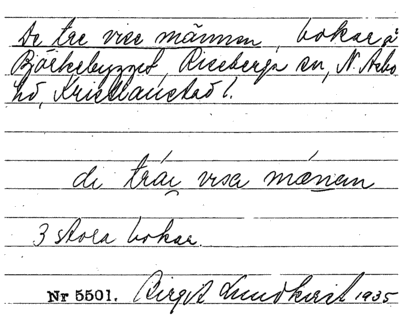 De tre vise männen, bokar å
Björkebygget, Riseberga sn, N. Åsbo
hd, Kristianstad l.
di tráị visa mánạn
3 stora bokar.
Nr 5501. Birgit Lundkvist 1935